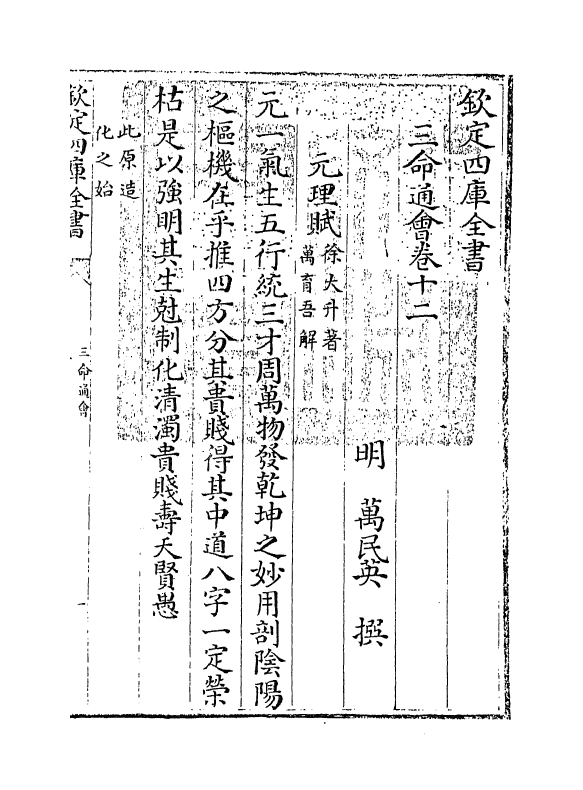 欽定四庫全書
三命通會卷十二
明 萬民英 撰
元理賦徐大升著
萬育吾解
元一氣生五行統三才周萬物發乾坤之妙用剖陰陽
之樞機在乎推四方分其貴賤得其中道八字一定榮
枯是以強明其生尅制化清濁貴賤壽夭賢愚
此原造
化之始
欽定四庫全書
三命通會